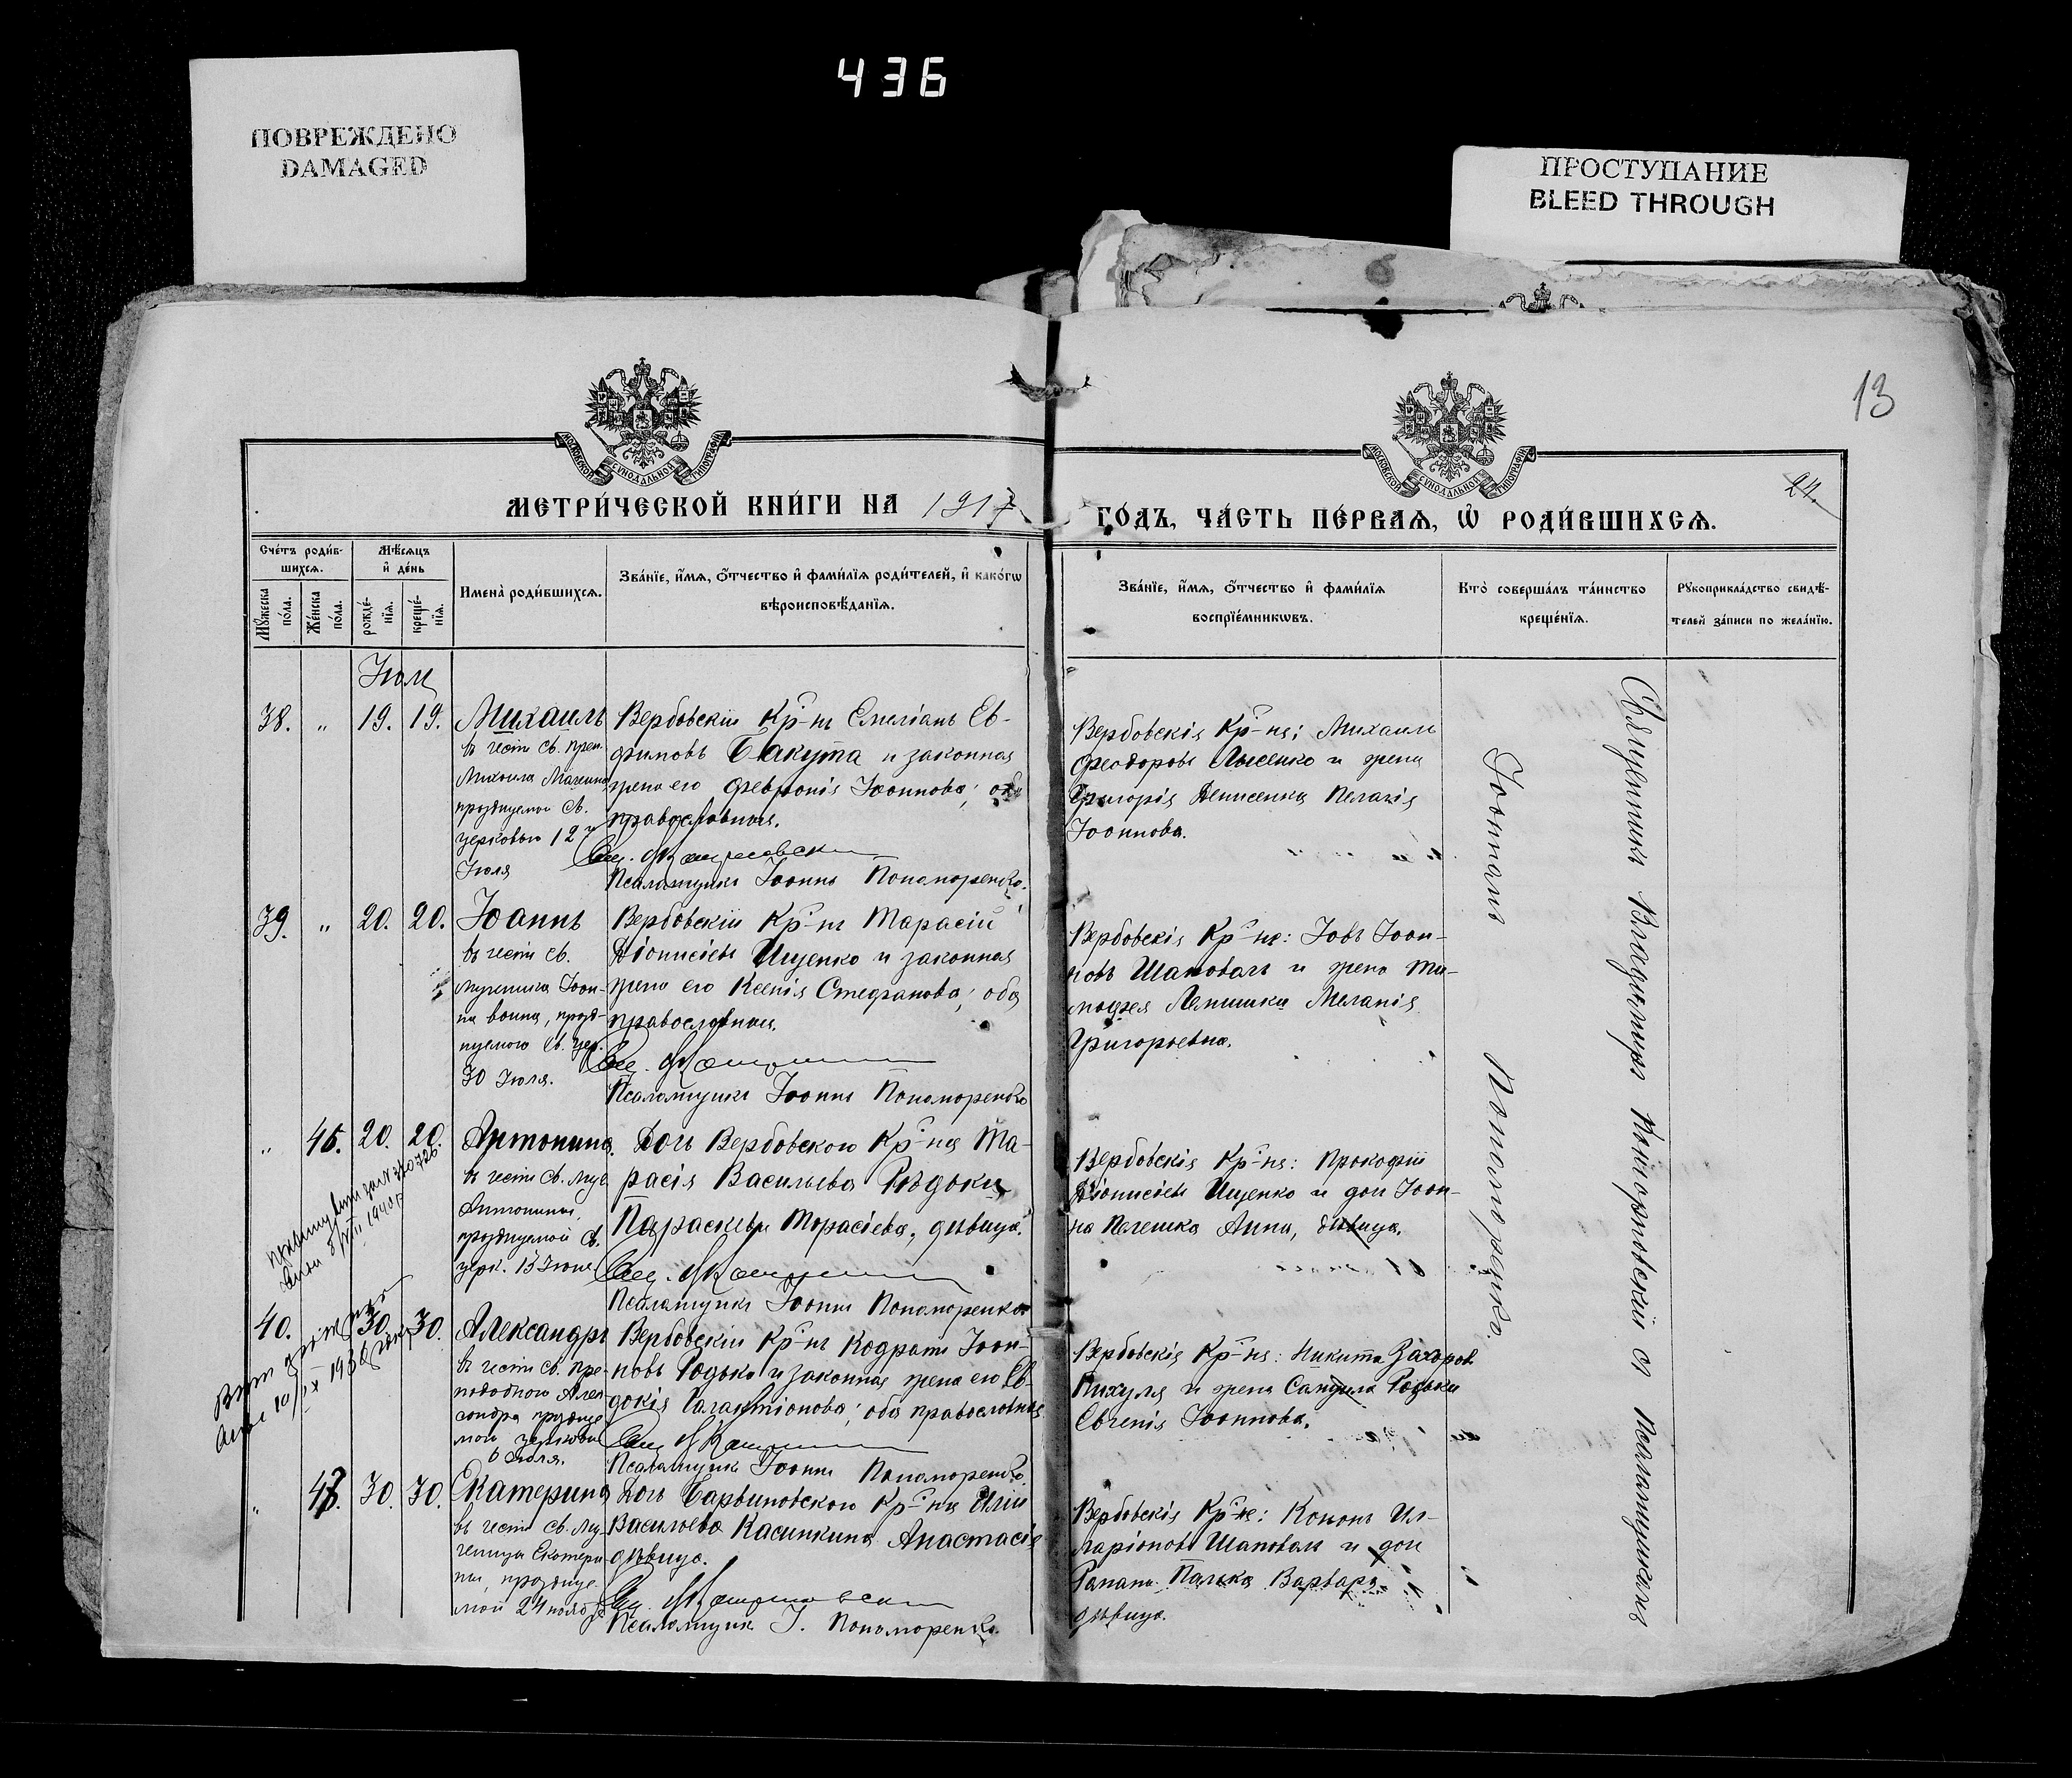 436
ПОВРЕЖДЕНО
DAMAGED
ПРОСТУПАНИЕ
BLEED THROUGH
13
24.
МОСКОВСКОЙ СѴНОДАЛЬНОЙ ТИПОГРАФІИ
МОСКОВСКОЙ СѴНОДАЛЬНОЙ ТИПОГРАФІИ
МЕТРИ́ЧЕСКОЙ КНИ́ГИ НА 1917
ГО́ДЪ, ЧА́СТЬ ПЕ́РВАѦ, Ѡ҆ РОДИ́ВШИХСѦ.
Сче́тъ роди́в-
шихсѧ.
Мꙋ́жеска
по́ла.
Же́нска
по́ла.
Мѣ́сѧцъ
и҆ де́нь
рожде́-
нїѧ.
креще́-
нїѧ.
Имена̀ роди́вшихсѧ.
Зва́нїе, и҆́мѧ, ѻ҆́тчество и҆ фами́лїѧ роди́телей, и҆ како́гѡ
вѣроисповѣ́данїѧ.
Зва́нїе, и҆́мѧ, ѻ҆́тчество и҆ фами́лїѧ
воспрїе́мникѡвъ.
Кто̀ соверша́лъ та́инство
креще́нїѧ.
Рꙋкоприкла́дство свидѣ́-
телей за́писи по жела́нїю.
Іюль
38. „ 19. 19. Михаилъ
въ честь св. преп.
Михаила Малеина
празднуемаго св.
церковью 12го
Іюля
Вербовскій Кр-нъ Емеліанъ Ев-
фимовъ Бакута и законная
жена его Февронія Іоаннова; оба
православные.
Свящ.
Псаломщикъ Іоаннъ Пономаренко.
Вербовскія Кр-не: Михаилъ
Феодоровъ Лысенко и жена
Григорія Денисенка Пелагія
Іоаннова.
39. „ 20. 20. Іоаннъ
въ честь св.
мученика Іоан-
на воина, празд-
нуемаго св. цер.
30 Іюля.
Вербовскій Кр-нъ Тарасій
Діонисіевъ Ищенко и законная
жена его Ксенія Стефанова; оба
православные.
Свящ.
Псаломщикъ Іоаннъ Пономаренко
Вербовскія Кр-не: Іовъ Іоан-
новъ Шаповалъ и жена Ти-
мофея Лемишки Меланія
Григорьевна.
„ 46. 20. 20. Антонина
въ честь св. муч.
Антонины,
празднуемой св.
церк. 13 Іюня
Дочь Вербовскаго Кр-на Та-
расія Васильева Рѣдоки
Параскевы Тарасіева, дѣвица.
Свящ.
Псаломщикъ Іоаннъ Пономаренко
Вербовскія Кр-не: Прокофій
Діонисіевъ Ищенко и дочь Іоан-
на Анна, дѣвица.
40. 30. 30. Александръ
въ честь св. пре-
подобнаго Алек-
сандра празднуе
мой церковью
6 Іюля.
Вербовскій Кр-нъ Кодратъ Іоан-
новъ Родько и законная жена его Ев-
докія Галактіонова; оба православные
Свящ
Псаломщикъ Іоаннъ Пономаренко
Вербовскія Кр-не: Никита Захаров
Пихуля и жена Родьки
Евгенія Іоаннова.
„ 30. 30. Екатерина
въ честь св. му-
ченицы Екатери-
ны, празднуе
мой 24 нояб
Дочь Барвиновскаго Кр-на Иліи
Васильева Касинкина Анастасія
дѣвица.
Свящ.
Псаломщик І. Пономаренко.
Вербовскія Кр-не: Кононъ Ил-
ларіоновъ Шаповалъ и дочь
Палька Варвара
дѣвица.
Священникъ съ Псаломщикомъ
Іоанномъ Пономаренко.